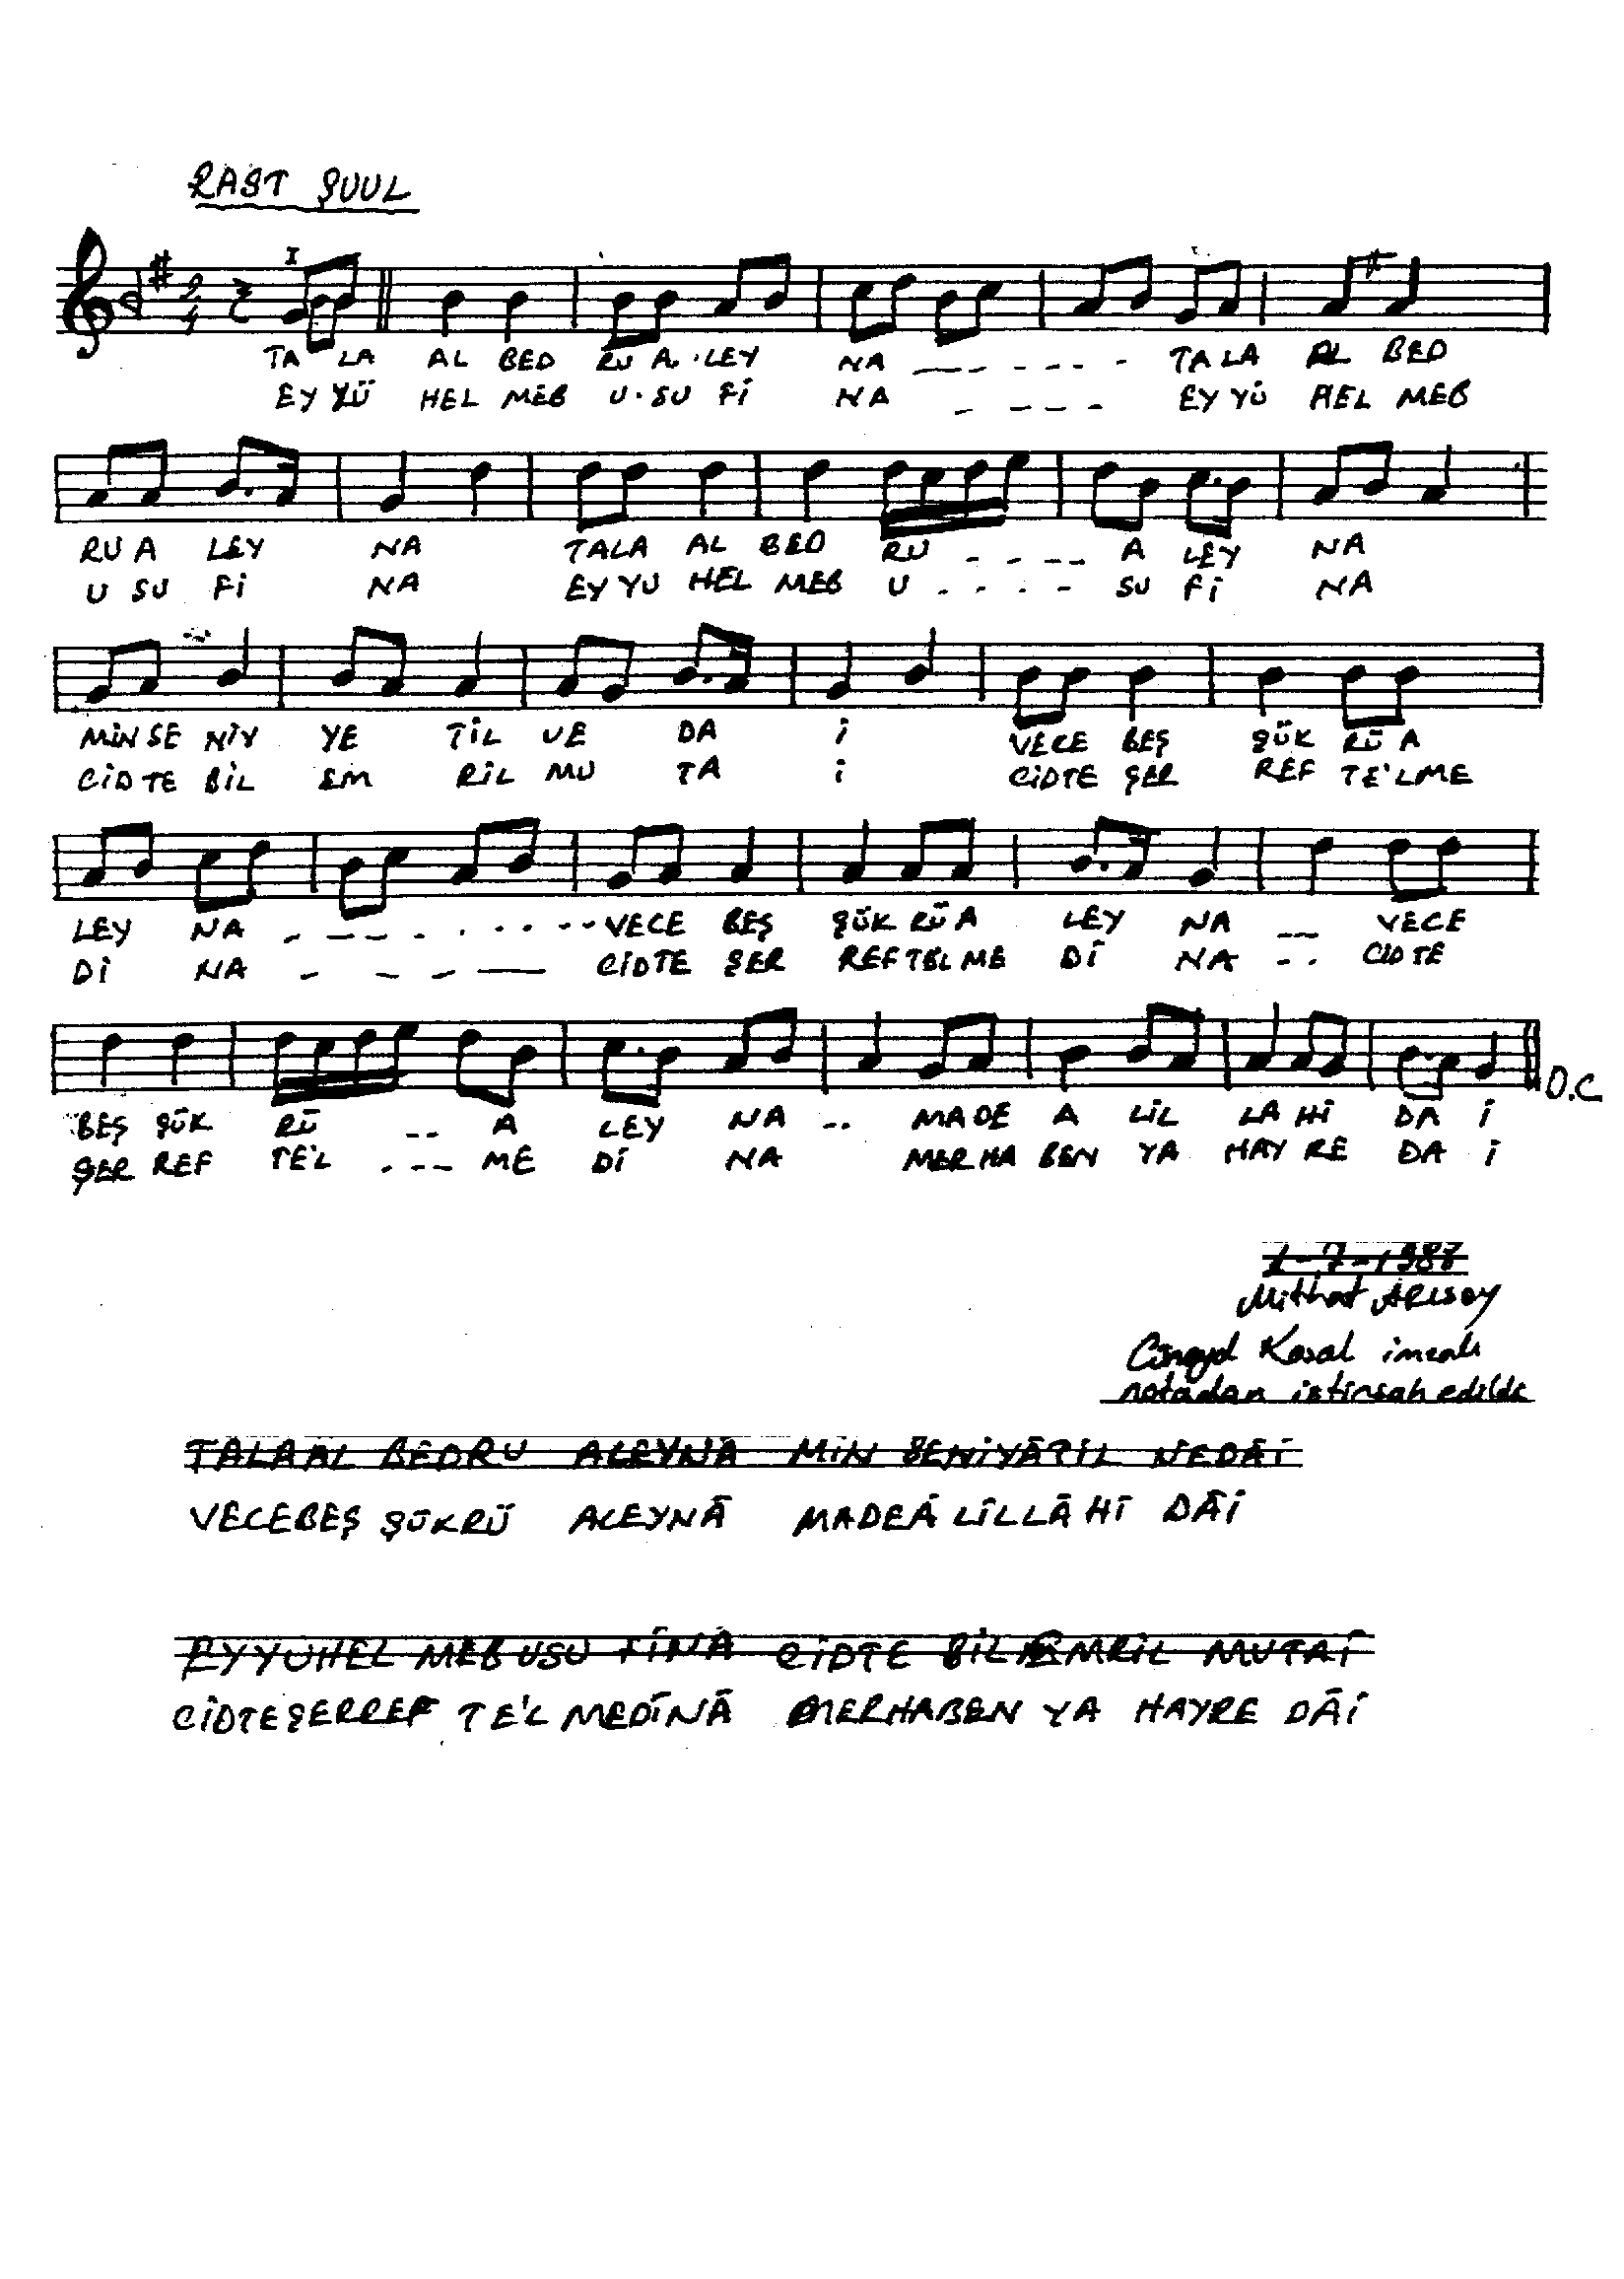 RAST ŞUUL
I
2
4
TA LA AL BED RU A LEY NA _ _ _ - - - - TA LA AL BED
EY YÜ HEL MEB U SU Fİ NA - - - - EY YÜ HEL MEB
RU A LEY NA TALA AL BED RU - - - - A LEY NA
U SU Fİ NA EY YU HEL MEB U - - - - SU Fİ NA
MİN SE NİY YE TİL VE DA İ VECE BEŞ ŞÜK RÜ A
CİDTE BİL EM RİL MU TA İ CİDTE ŞER REF TE'LME
LEY NA - - - - - - - - VECE BEŞ ŞÜK RÜ A LEY NA -- VECE
Dİ NA - - - - CİDTE ŞER REF TEL ME Dİ NA -- CİDTE
BEŞ ŞÜK RÜ -- A LEY NA -- MADE A LİL LA Hİ DA İ
ŞER REF TE'L ---- ME Dİ NA MERHA BEN YA HAY RE DA İ
D.C
1-7-1987
Mithat ARISOY
Cüneyd Kosal imzalı
notadan istinsah edildi
TALAAL BEDRU ALEYNÂ MİN SENİYÂTİL VEDÂİ
VECEBEŞ ŞÜKRÜ ALEYNÂ MADEÂ LİLLÂHİ DÂİ
EYYUHEL MEBUSU FİNÂ CİDTE BİL EMRİL MUTAİ
CİDTEŞERREF TE'L MEDÎNÂ MERHABEN YA HAYRE DÂİ